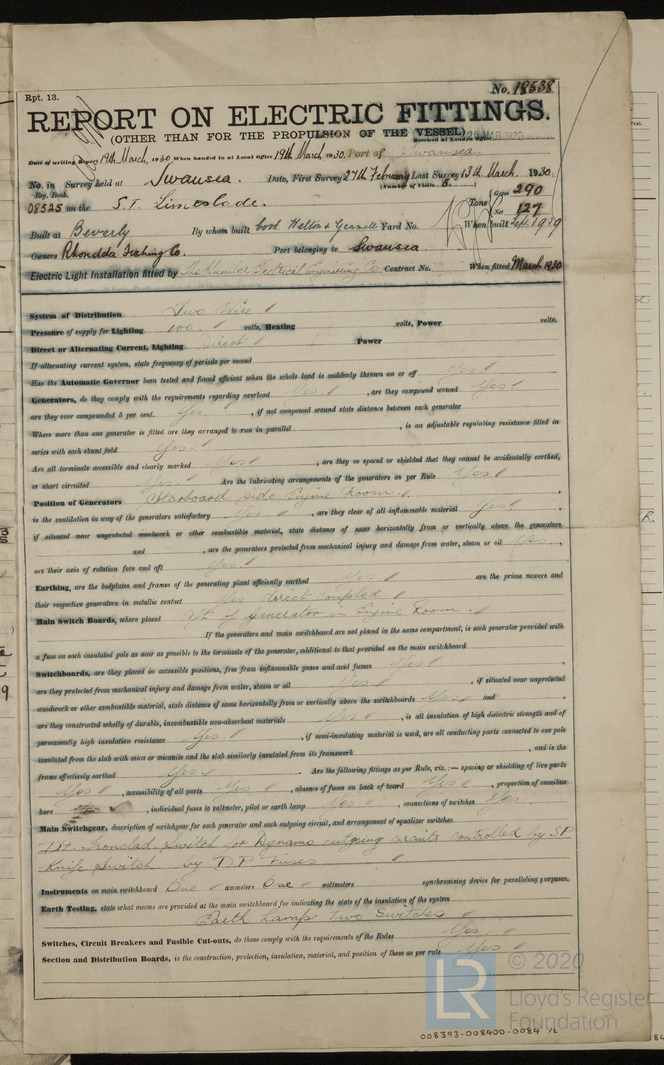 Rpt. 13.
No. 18538
REPORT ON ELECTRIC FITTINGS.
(OTHER THAN FOR THE PROPULSION OF THE VESSEL)
Received at London Office
Date of writing Report 19th March, 1930 When handed in at Local Office 19th March 1930. Port of Swansea.
No. in Survey held at Swansea. Date, First Survey 27th February Last Survey 13th March. 1930.
Reg. Book. (Number of Visits
08525 on the S.T. Tons Gross 290
Net 127
Built at Beverly By whom built Cook Welton & Gemmell Yard No. When built 1919
Owners Rhondda Fishing Co. Port belonging to Swansea
Electric Light Installation fitted by The Humber Electrical Engineering Co Contract No. When fitted March 1930
System of Distribution Two Wire
Pressure of supply for Lighting 100 volts, Heating volts, Power volts.
Direct or Alternating Current, Lighting Direct Power
If alternating current system, state frequency of periods per second
Has the Automatic Governor been tested and found efficient when the whole load is suddenly thrown on or off Yes
Generators, do they comply with the requirements regarding overload Yes , are they compound wound Yes
are they over compounded 5 per cent. Yes , if not compound wound state distance between each generator
Where more than one generator is fitted are they arranged to run in parallel , is an adjustable regulating resistance fitted in
series with each shunt field Yes
Are all terminals accessible and clearly marked Yes , are they so spaced or shielded that they cannot be accidentally earthed,
or short circuited Yes Are the lubricating arrangements of the generators as per Rule Yes
Position of Generators Starboard side Engine Room.
is the ventilation in way of the generators satisfactory Yes , are they clear of all inflammable material Yes
if situated near unprotected woodwork or other combustible material, state distance of same horizontally from or vertically above the generators
and , are the generators protected from mechanical injury and damage from water, steam or oil Yes
are their axis of rotation fore and aft Yes
Earthing, are the bedplates and frames of the generating plant efficiently earthed Yes are the prime movers and
their respective generators in metallic contact Yes direct coupled
Main Switch Boards, where placed of generator in Engine Room.
If the generators and main switchboard are not placed in the same compartment, is each generator provided with
a fuse on each insulated pole as near as possible to the terminals of the generator, additional to that provided on the main switchboard
Switchboards, are they placed in accessible positions, free from inflammable gases and acid fumes Yes
are they protected from mechanical injury and damage from water, steam or oil Yes , if situated near unprotected
woodwork or other combustible material, state distance of same horizontally from or vertically above the switchboards Yes and
are they constructed wholly of durable, incombustible non-absorbent materials Yes , is all insulation of high dielectric strength and of
permanently high insulation resistance Yes , if semi-insulating material is used, are all conducting parts connected to one pole
insulated from the slab with mica or micanite and the slab similarly insulated from its framework , and is the
frame effectively earthed Yes Are the following fittings as per Rule, viz.:— spacing or shielding of live parts
Yes , accessibility of all parts Yes , absence of fuses on back of board Yes , proportion of omnibus
bars , individual fuses to voltmeter, pilot or earth lamp Yes , connections of switches Yes
Main Switchgear, description of switchgear for each generator and each outgoing circuit, and arrangement of equalizer switches
D.P. Ironclad Switch for Dynamo outgoing circuits controlled by S.P.
Knife Switch by D.P. Fuses
Instruments on main switchboard One ammeters One voltmeters synchronising device for paralleling purposes.
Earth Testing, state what means are provided at the main switchboard for indicating the state of the insulation of the system
Earth Lamp Two Switches
Switches, Circuit Breakers and Fusible Cut-outs, do these comply with the requirements of the Rules Yes
Section and Distribution Boards, is the construction, protection, insulation, material, and position of these as per rule Yes
LR © 2020
Lloyd's Register
Foundation
008393-008400-0084 1/2